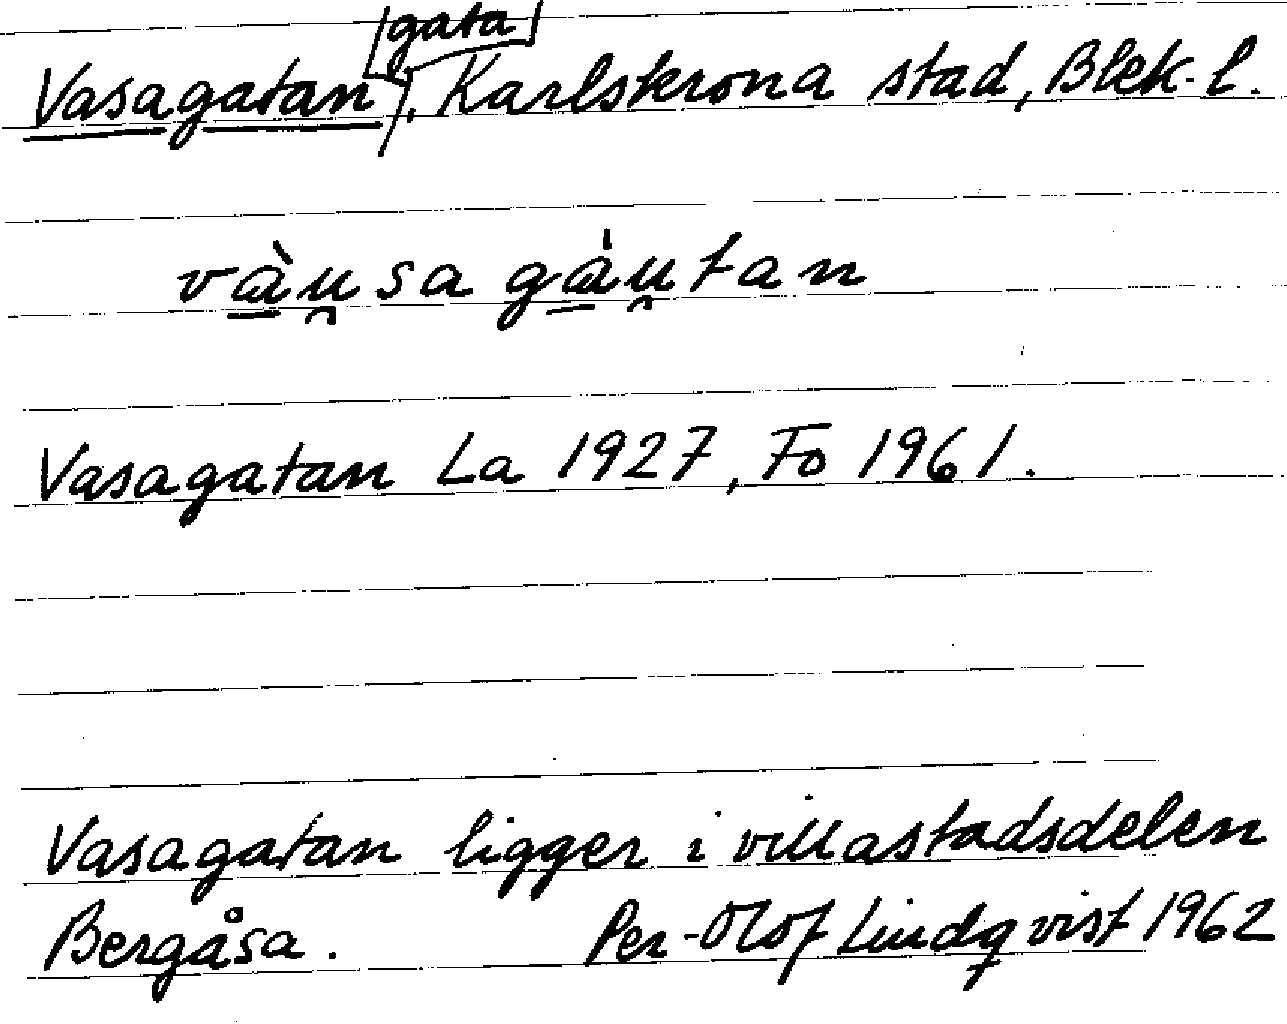 gata
Vasagatan, Karlskrona stad, Blek. l.
vàu̯sagàu̯tan
Vasagatan La 1927, Fo 1961.
Vasagatan ligger i villastadsdelen
Bergåsa. Per-Olof Lindqvist 1962